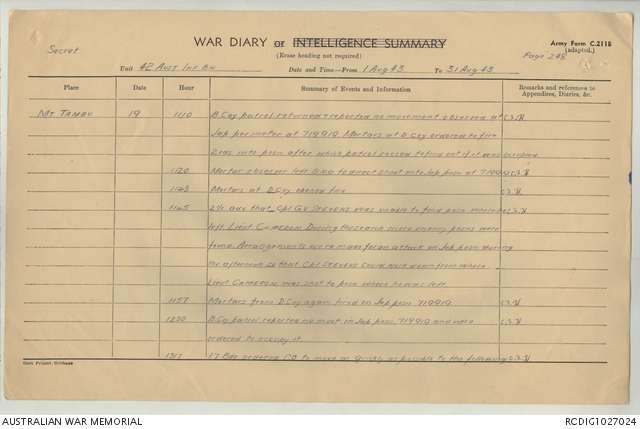 Secret
WAR DIARY or INTELLIGENCE SUMMARY
(Erase heading not required)
Army Form C.2118
(adapted.)
Page 248
Unit 42 Aust Inf Bn Date and Time—From 1 Aug 43 To 31 Aug 43
Place Date Hour Summary of Events and Information Remarks and references to
Appendices, Diaries, &c.
Mt TAMBU 19 1110 B Coy patrol returned & reported no movement observed at
Jap perimeter at 719919. Mortars at D Coy ordered to fire
into posn after which patrol to find out if it was occupied
1120 Mortar observer left to direct shoot onto Jap posn at 719919
1123 Mortars at D Coy opened fire
1125 that Cpl STEVENS was unable to find posn where he
left Lieut CAMERON. During the search more enemy posns were
found. Arrangements were made for an attack on Jap posn during
the afternoon so that Cpl STEVENS could work down from where
Lieut CAMERON was shot to posn where he was left
1157 Mortars from D Coy again fired on Jap posn 719919
1220 B Coy patrol reported no movt in Jap posn 719919 and were
ordered to occupy it
17 Bde ordered CO to move as quickly as possible to the following
AUSTRALIAN WAR MEMORIAL
RCDIG1027024